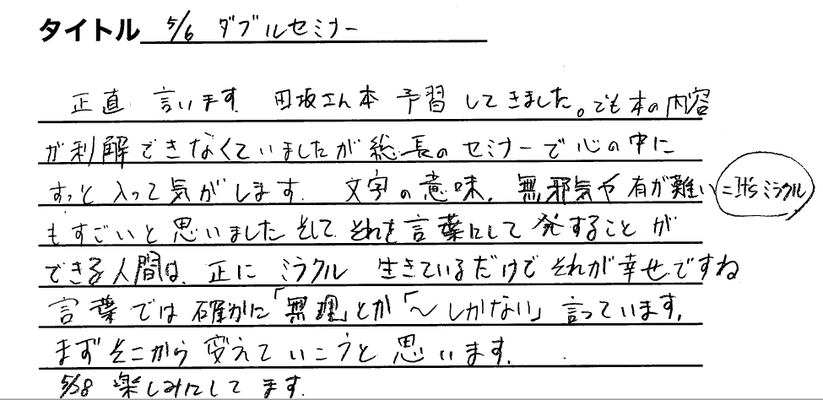 タイトル 5/6 ダブルセミナー
正直 言います 田坂さん本 予習 してきました。でも本の内容
が利解できなくていましたが総長のセミナーで心の中に
すっと入って気がします. 文字の意味. 無邪気や有が難い =It's ミラクル
もすごいと思いました そして それを言葉にして発することが
できる人間は、正に ミラクル 生きているだけで それが幸せですね
言葉では確かに「無理」とか「〜しかない」言っています.
まずそこから変えていこうと思います.
5/28 楽しみにしてます.